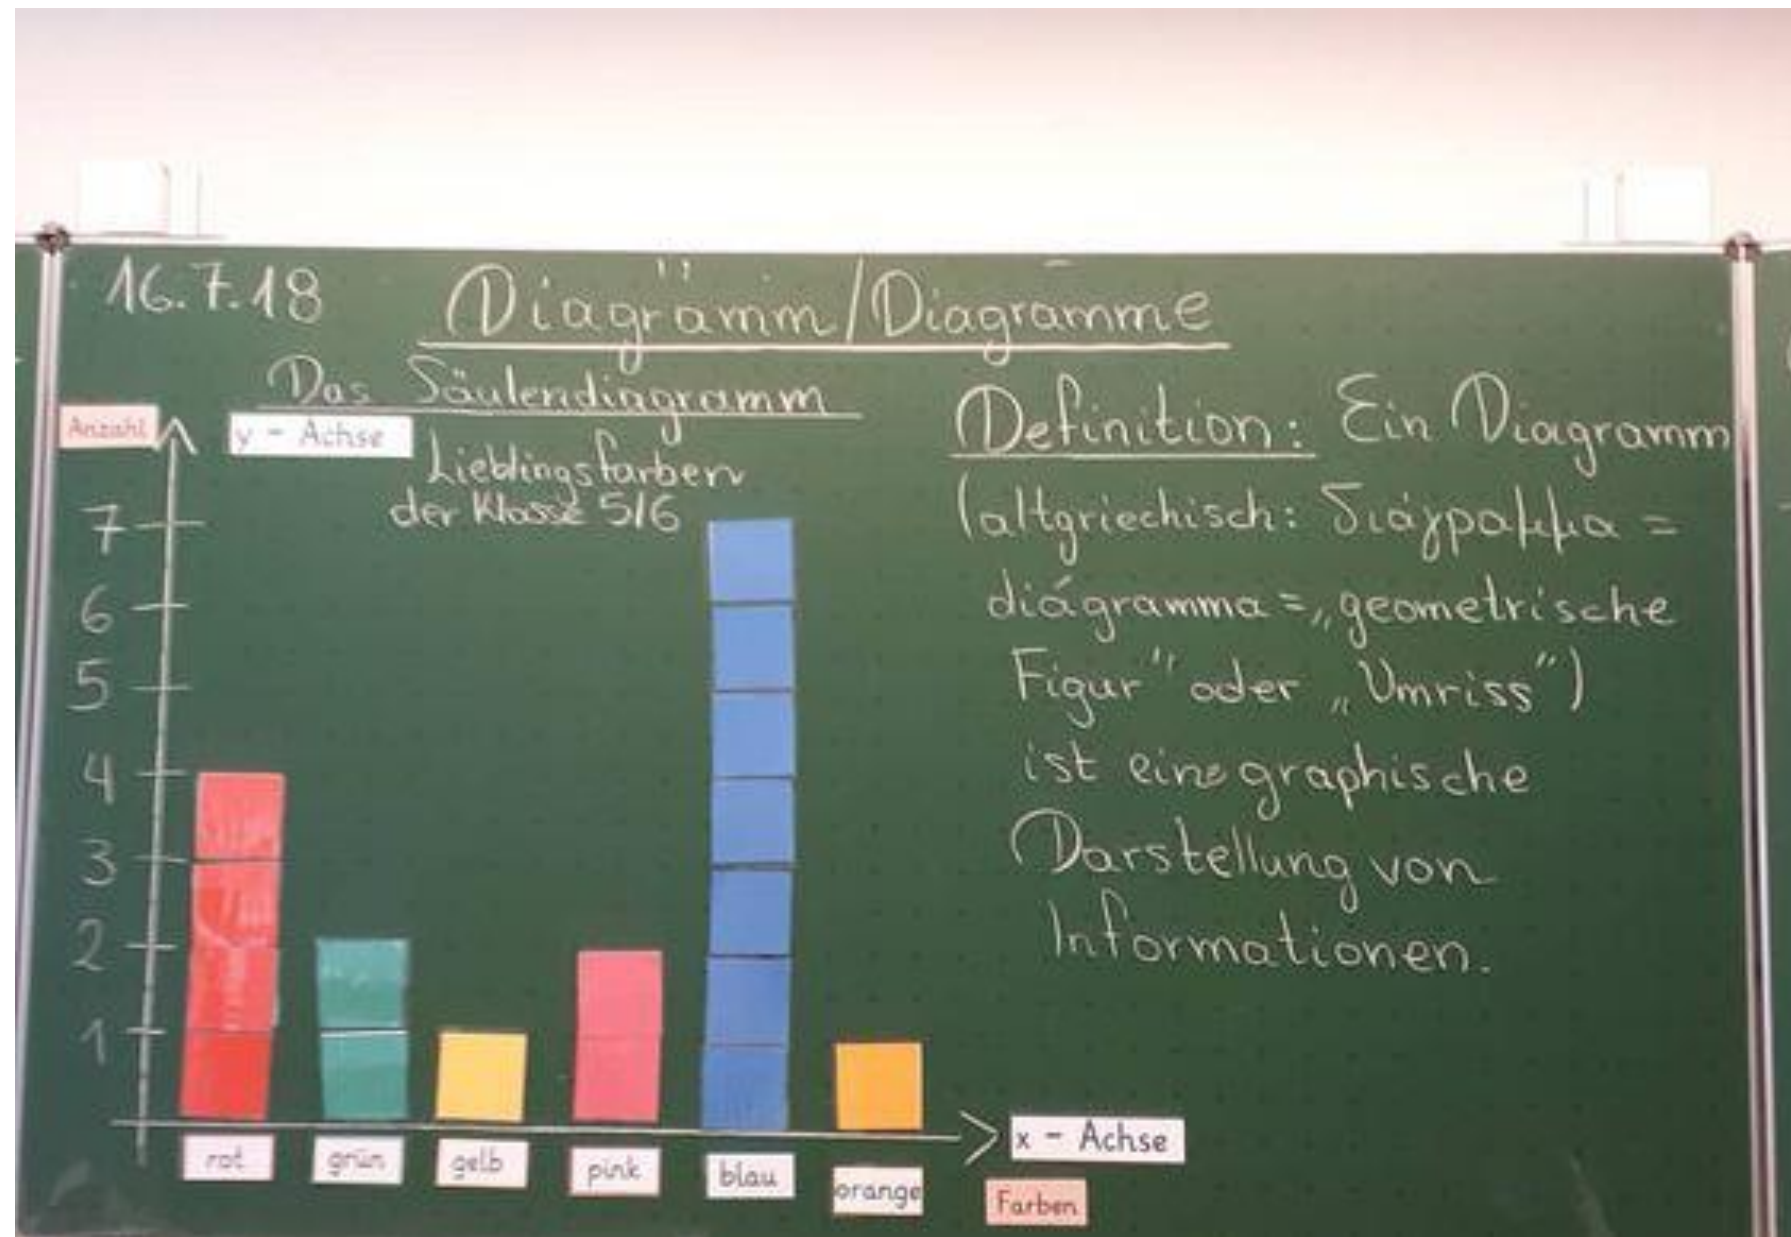 16.7.18
Diagramm/Diagramme
Das Säulendiagramm
Anzahl
y - Achse
Lieblingsfarben
der Klasse 5/6
7
6
5
4
3
2
1
rot
grün
gelb
pink
blau
orange
x - Achse
Farben
Definition: Ein Diagramm
(altgriechisch: διάγραμμα =
diágramma = „geometrische
Figur" oder „Umriss")
ist eine graphische
Darstellung von
Informationen.